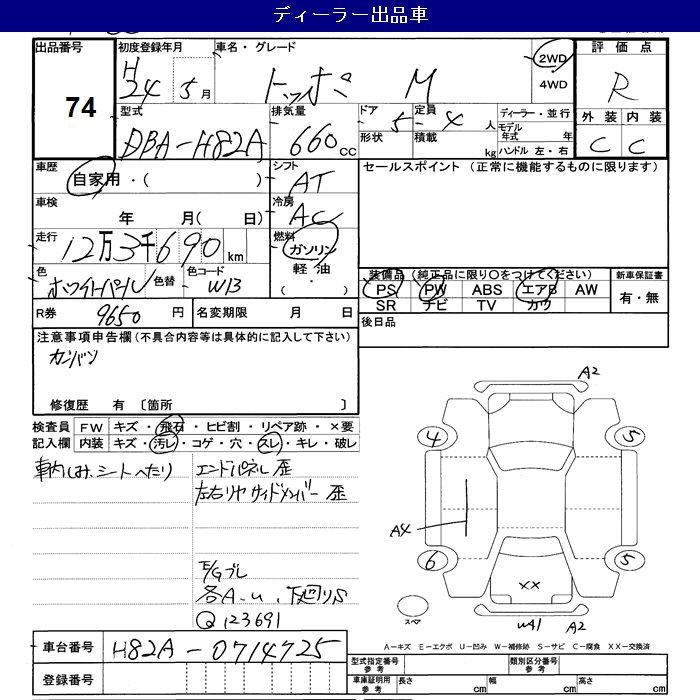 ディーラー出品車
出品番号 74
初度登録年月 H24 5月
車名・グレード トッポ M
2WD 4WD
評価点 R
型式 DBA-H82A
排気量 660cc
ドア 5 形状
定員 4人 積載 kg
ディーラー・並行
モデル年式 年
ハンドル 左・右
外装 内装
C C
車歴 自家用・( )
シフト AT
セールスポイント (正常に機能するものに限ります)
車検 年 月( 日)
冷房 AC
走行 12万3千690km
燃料 ガソリン 軽油 ・ ( )
色 ホワイトパール 色替 色コード W13
装備品 (純正品に限り○をつけてください) 新車保証書
PS PW ABS エアB AW 有・無
SR ナビ TV カワ
R券 9650円 名変期限 月 日
後日品
注意事項申告欄 (不具合内容等は具体的に記入して下さい)
カンバン
修復歴 有 〔箇所 〕
検査員 FW キズ・飛石・ヒビ割・リペア跡・×要
記入欄 内装 キズ・汚レ・コゲ・穴・スレ・キレ・破レ
車内しみ、シートへたり
エンドパネル歪
左右リヤサイドメンバー歪
E/Gブレ
各A-u、下廻りS
Q 123691
A2
4 5
A4
6 5
XX
スペア
WA1 A2
A-キズ E-エクボ U-凹み W-補修跡 S-サビ C-腐食 XX-交換済
車台番号 H82A-0714725
登録番号
型式指定番号 参考 類別区分番号 参考
車庫証明用 参考 長さ cm 幅 cm 高さ cm